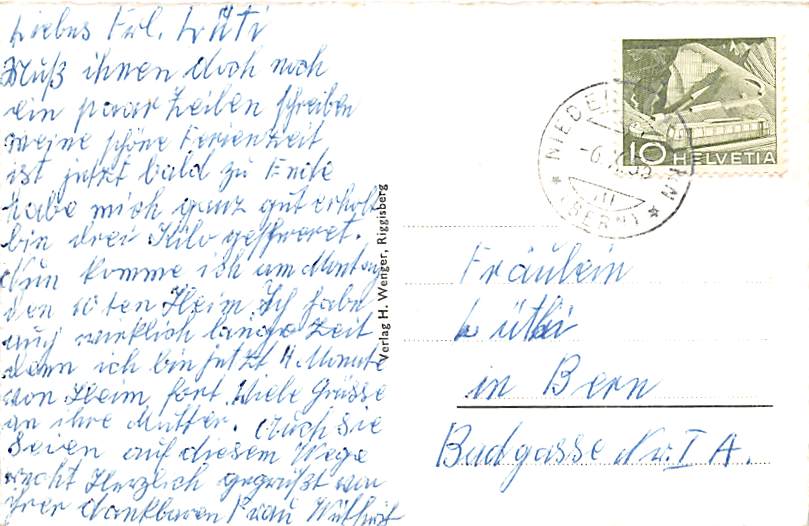 Liebes Frl. Lüti
Muß ihnen doch noch
ein paar Zeilen schreiben
meine schöne Ferienzeit
ist jetzt bald zu Ente
habe mich ganz gut erholt
bin drei Kilo
Nun komme ich am Montag
den 10ten Heim. Ich habe
auch wirklich lange Zeit
denn ich bin jetzt 4 Monate
von Heim fort. Viele Grüsse
an ihre Mutter. Auch Sie
Seien auf diesem Wege
recht Herzlich gegrüßt von
ihrer dankbaren Frau
Verlag H. Wenger, Riggisberg
10 HELVETIA
(BERN)
Fräulein
Lüthi
in Bern
Badgasse Nr. I A.